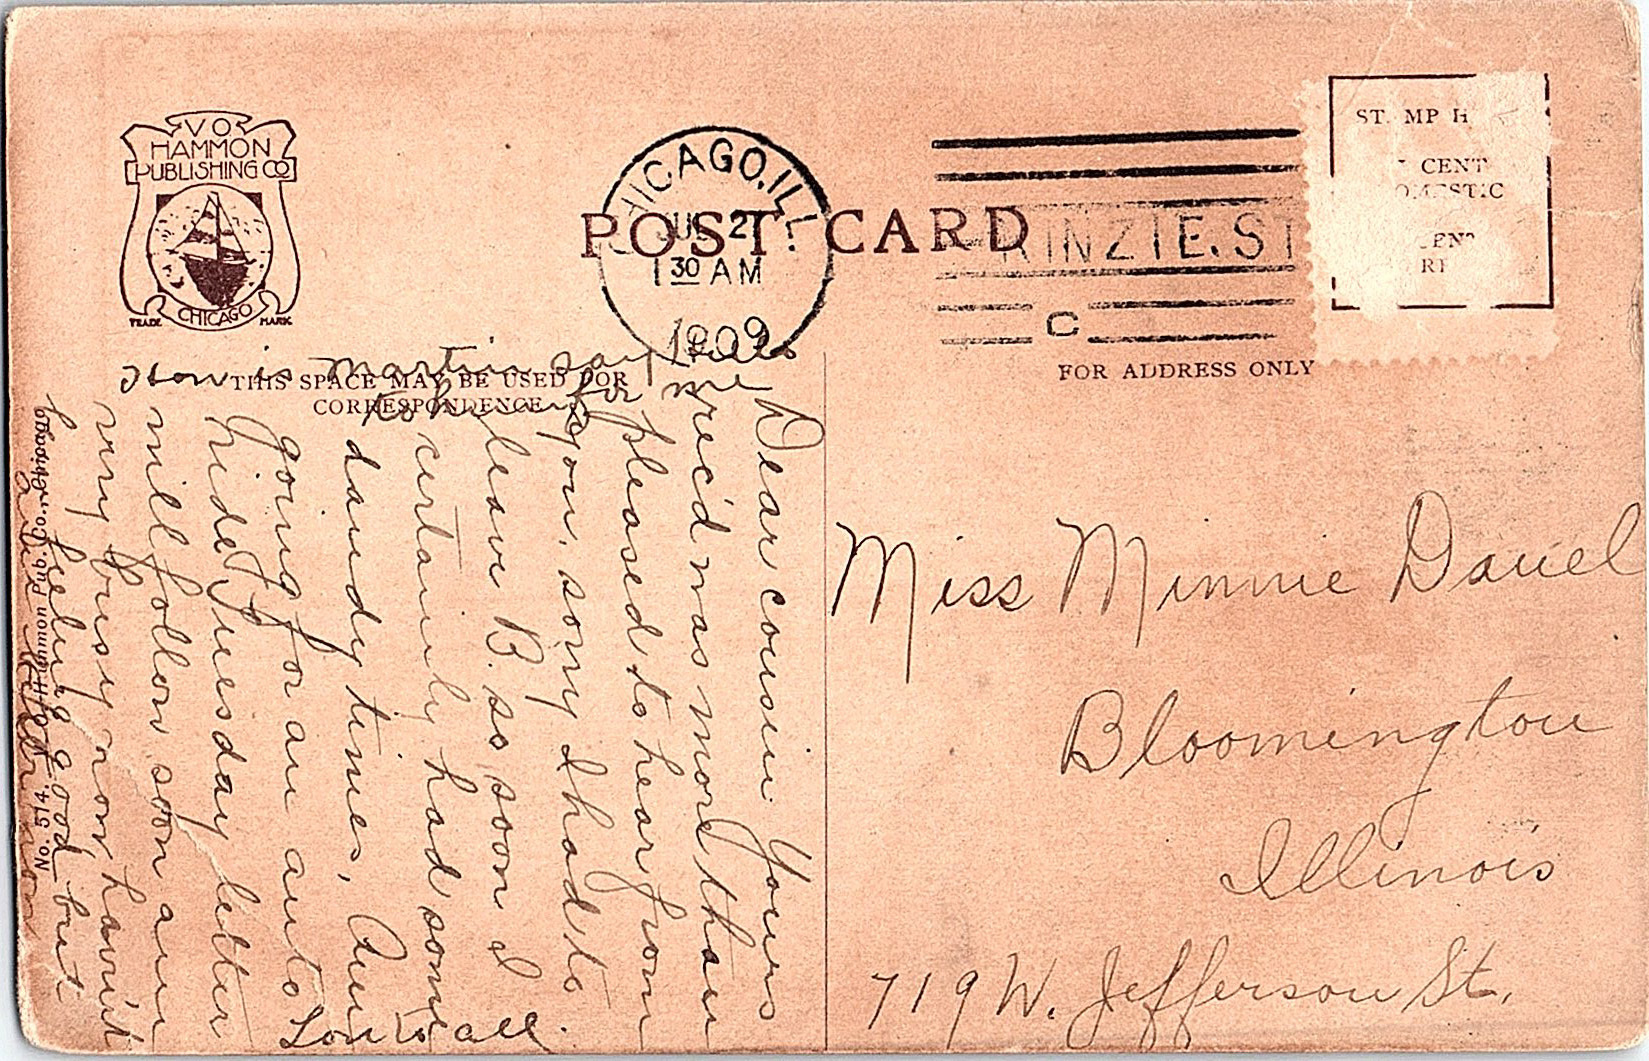 VO
HAMMON
PUBLISHING CO
CHICAGO
TRADE MARK
CHICAGO, ILL.
JUL 27
1 30 AM
1909
POST CARD
KINZIE. ST
C
ST MP H
CENT
OMESTIC
THIS SPACE MAY BE USED FOR
CORRESPONDENCE
FOR ADDRESS ONLY
How is Martin say
to him for me
Dear cousin Yours
rec'd was more than
pleased to hear from
you, sorry I had to
leave B. so soon I
certainly had some
dandy times, Am
going for an auto
ride Tuesday letter
will follow soon am
very busy now havin't
b feeling good but
Love to all.
No. 514. Hammon Pub. Co., Chicago
Miss Minnie Dauel
Bloomington
Illinois
719 W. Jefferson St.